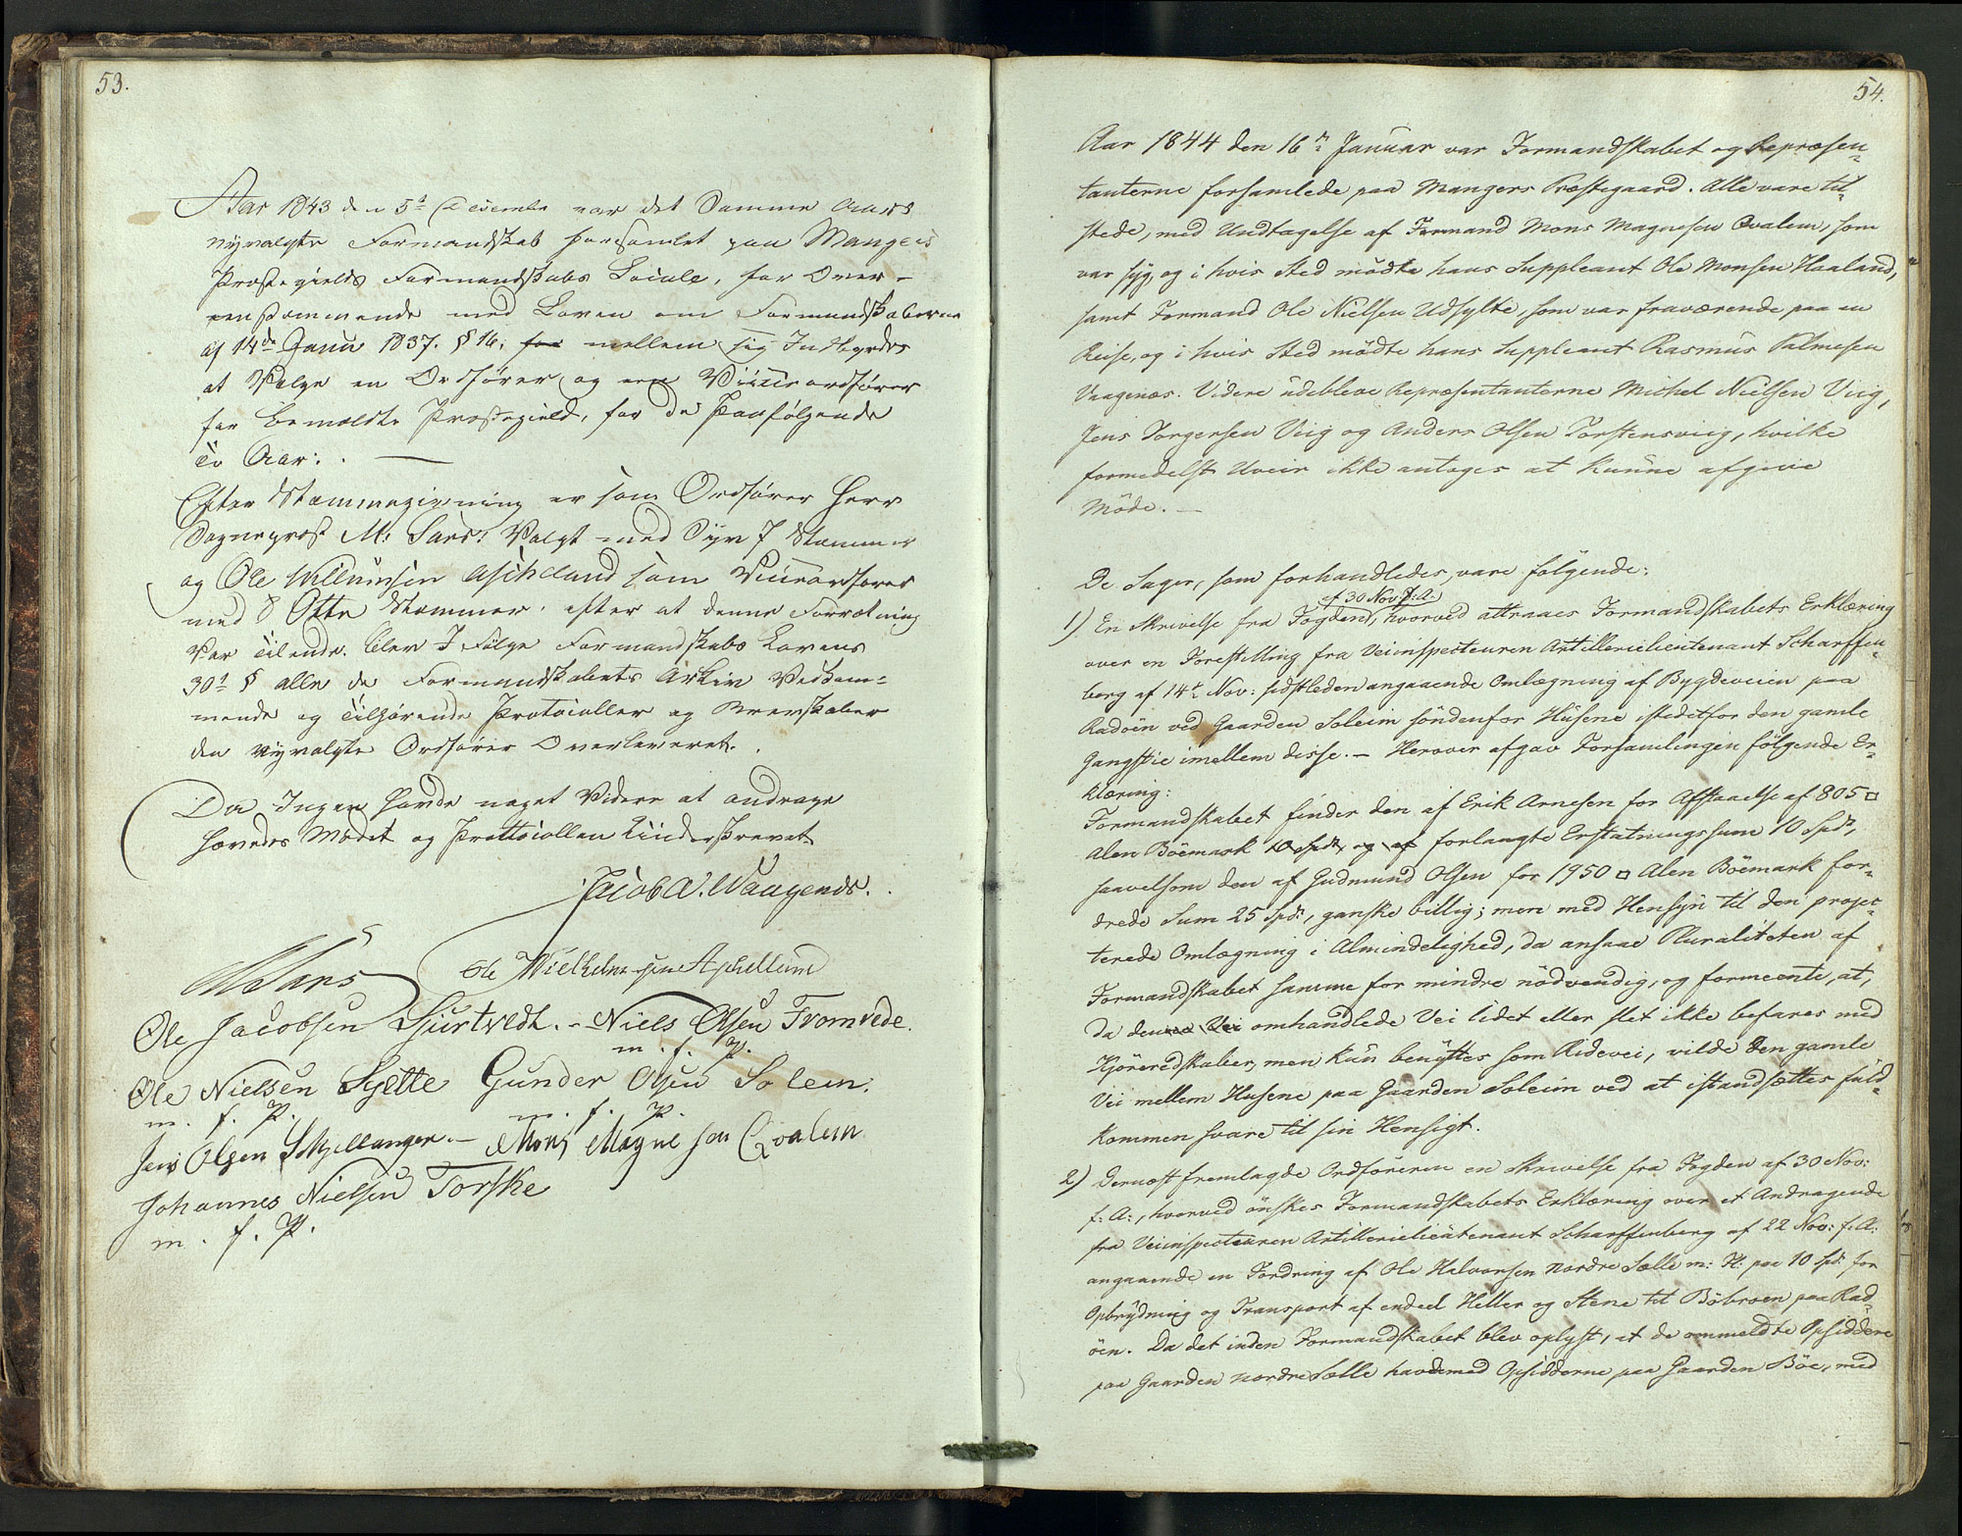 53.
Aar 1843 den 5te December var det Samme Aars
nyvalgte Formandskab forsamlet paa Mangers
Præstegields Formandskabs Locale, for Over-
eenstæmmende med Loven om Formandskaberne
af 14de Janu 1837. § 16, for mellem sig Indbyrdes
at Vælge en Ordfører og een Viiceordfører
for bemældte Præstegield, for de paafølgende
To Aar. . —
Efter Stæmmegivning er som Ordfører Herr
Sognepræst M: Sars: Valgt med Syv 7 Stæmmer
og Ole Willumsen Ascheland som Viiceordfører
med 8 Otte Stæmmer, efter at denne Forrætning
Var Tilende. blev I Følge Formandskabs Lovens
30te § alle de Formandskabets Arkiv Vedkom=
mende og Tilhørende Protocoller og Brevskaber
den nyvalgte Ordfører Overleveret. .
Da Ingen havde noget Videre at andrage
hævedes Mødet og Prottocollen Underskrevet.
Jacob A. Waagenæs. .
M Sars
Ole Wielhelmsen Aschelland
Ole Jacobsen Hjurtvedt. - Niels Olsen Fromrede.
m. f. P.
Ole Nielsen Sylte Gunder Olsen Solem.
m. f. P. m. f. P.
Jens Olsen Skjellanger. - Mons Magnesen Qvalem
Johannes Nielsen Torske
m. f. P.
54.
Aar 1844 den 16de Januar var Formandskabet og Repræsen-
tanterne forsamlede paa Mangers Præstegaard. Alle vare til-
stede, med Undtagelse af Formand Mons Magnesen Qvalem, som
var syg, og i hvis Sted mødte hans Suppleant Ole Monsen Haaland,
samt Formand Ole Nielsen Udsylte, som var fraværende paa en
Reise, og i hvis Sted mødte hans Suppleant Rasmus Palmesen
Vaagenæs. Videre udebleve Repræsentanterne Michel Nielsen Viig,
Jens Torgersen Viig og Anders Olsen Torstensviig, hvilke
formedelst Uveir ikke antages at kunne afgive
Møde. —
De Sager, som forhandledes, vare følgende:
af 30 Nov: f: A:
1) En Skrivelse fra Fogden, hvorved attraaes Formandskabets Erklæring
over en Forestilling fra Veiinspecteuren Artillerielieutenant Scharffen-
berg af 14de Nov: sidstleden angaaende Omlægning af Bygdeveien paa
Radøen ved Gaarden Soleim søndenfor Husene istedetfor den gamle
Gangstie imellem disse. — Herover afgav Forsamlingen følgende Er-
klæring:
Formandskabet finder den af Erik Arnesen for Afstaaelse af 805 □
Alen Bøemark 10 Spdr, og af forlangte Erstatningssum 10 Spdr,
saavelsom den af Gudmund Olsen for 1950 □ Alen Bøemark for-
drede Sum 25 Spdr, ganske billig; men med Hensyn til den projec-
terede Omlægning i Almindelighed, da ansaae Pluraliteten af
Formandskabet samme for mindre nødvendig, og formeente, at,
da denne Vei omhandlede Vei lidet eller slet ikke befares med
Kjøreredskaber, men kun benyttes som Ridevei, vilde den gamle
Vei mellem Husene paa Gaarden Soleim ved at istandsættes fuld-
kommen svare til sin Hensigt.
2) Dernæst fremlagde Ordføreren en Skrivelse fra Fogden af 30 Nov:
f: A:, hvorved ønskes Formandskabets Erklæring over et Andragende
fra Veiinspecteuren Artillerielieutenant Scharffenberg af 22 Nov: f: A:
angaaende en Fordring af Ole Halvorsen Nordre Sælle m: Fl: paa 10 Spdr for
Opbrydning og Transport af endeel Heller og Stene til Bøbroen paa Rad-
øen. Da det inden Formandskabet blev oplyst, at de ommeldte Opsiddere
paa Gaarden Nordre Sælle havde med Opsidderne paa Gaarden Bøe, med